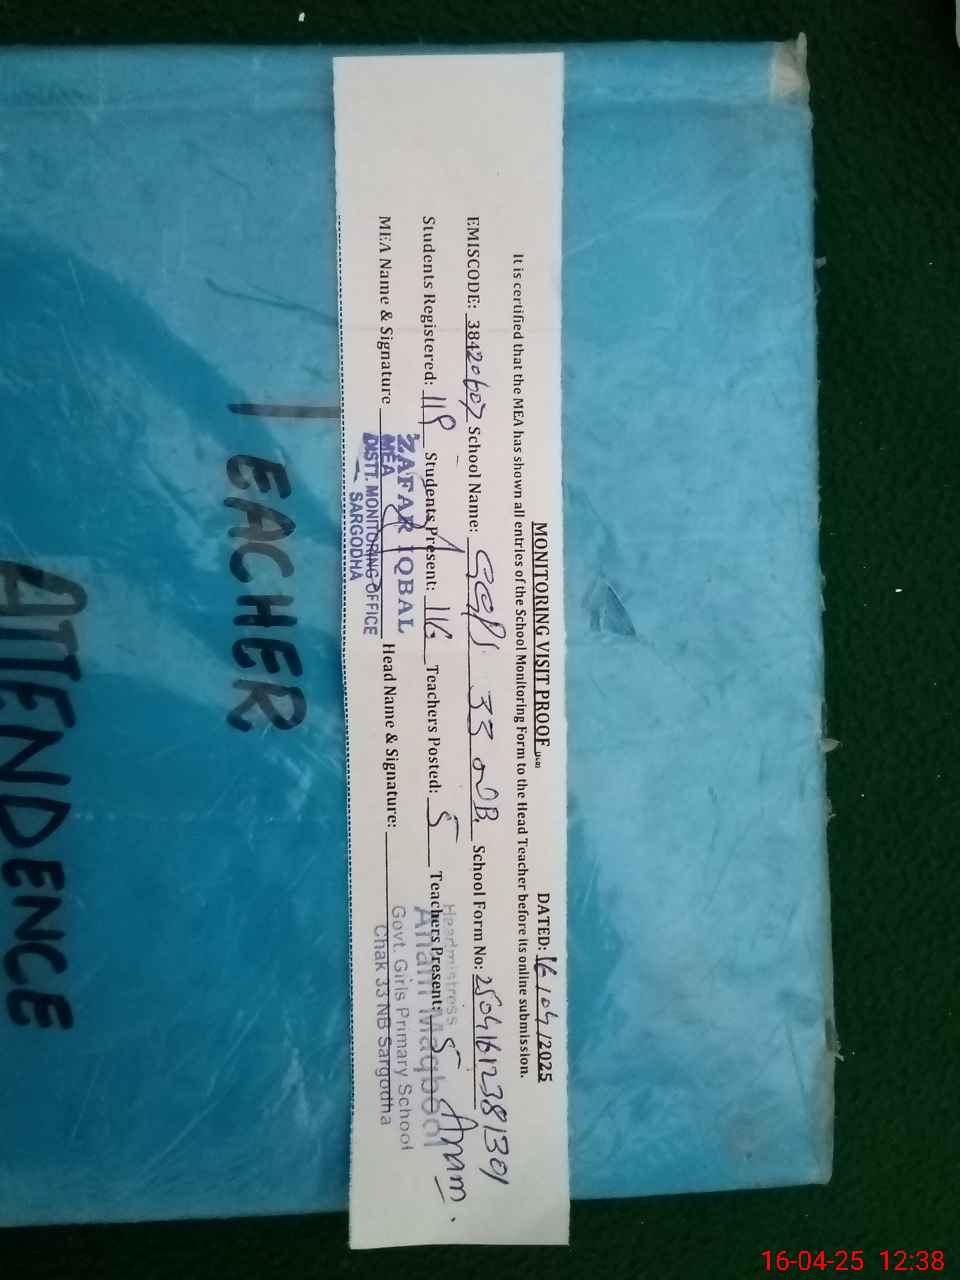 MONITORING VISIT PROOF DATED: 16/04/2025
It is certified that the MEA has shown all entries of the School Monitoring Form to the Head Teacher before its online submission.
EMISCODE: 38420607 School Name: GGPS 33 NB School Form No: 25041612381301
Students Registered: 119 Students Present: 116 Teachers Posted: 5 Teachers Present: 5
MEA Name & Signature Head Name & Signature: Anam
ZAFAR IQBAL
MEA
DISTT. MONITORING OFFICE
SARGODHA
Headmistress
Anam Maqbool
Govt. Girls Primary School
Chak 33 NB Sargodha
TEACHER
ATTENDENCE
16-04-25 12:38